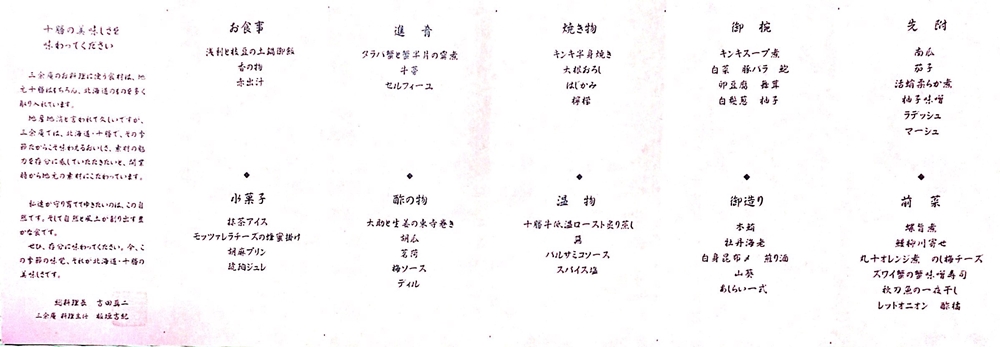 先附
南瓜
茄子
活鮑柔らか煮
柚子味噌
ラデッシュ
マーシュ
前菜
螺旨煮
鰊柳川寄せ
丸十オレンジ煮 のし梅チーズ
ズワイ蟹の蟹味噌寿司
秋刀魚の一夜干し
レッドオニオン 酢橘
御椀
キンキスープ煮
白菜 豚バラ
卵豆腐 舞茸
白髪葱 柚子
御造り
本鮪
牡丹海老
白身昆布〆 煎り酒
山葵
あしらい一式
焼き物
キンキ半身焼き
大根おろし
はじかみ
檸檬
温物
十勝牛低温ロースト炙り蒸し
バルサミコソース
スパイス塩
進肴
タラバ蟹と蟹半片の窯煮
牛蒡
セルフィーユ
酢の物
大助と生姜の東寺巻き
胡瓜
茗荷
梅ソース
ディル
お食事
浅利と枝豆の土鍋御飯
香の物
赤出汁
水菓子
抹茶アイス
モッツァレラチーズの蜂蜜掛け
胡麻プリン
琥珀ジュレ
十勝の美味しさを
味わってください
三余庵のお料理に使う食材は、地
元十勝はもちろん、北海道のものを多く
取り入れています。
地産地消と言われて久しいですが、
三余庵では、北海道・十勝で、その季
節だからこそ味わえるおいしさ、素材の魅
力を存分に感していただきたいと、開業
時から地元の素材にこだわっています。
私達が守り育ててゆきたいのは、この自
然です。そして自然と風土が創り出す豊
かな食です。
ぜひ、存分に味わってください。今、こ
の季節の味覚、それが北海道・十勝の
美味しさです。
総料理長 吉田真二
三余庵 料理主任